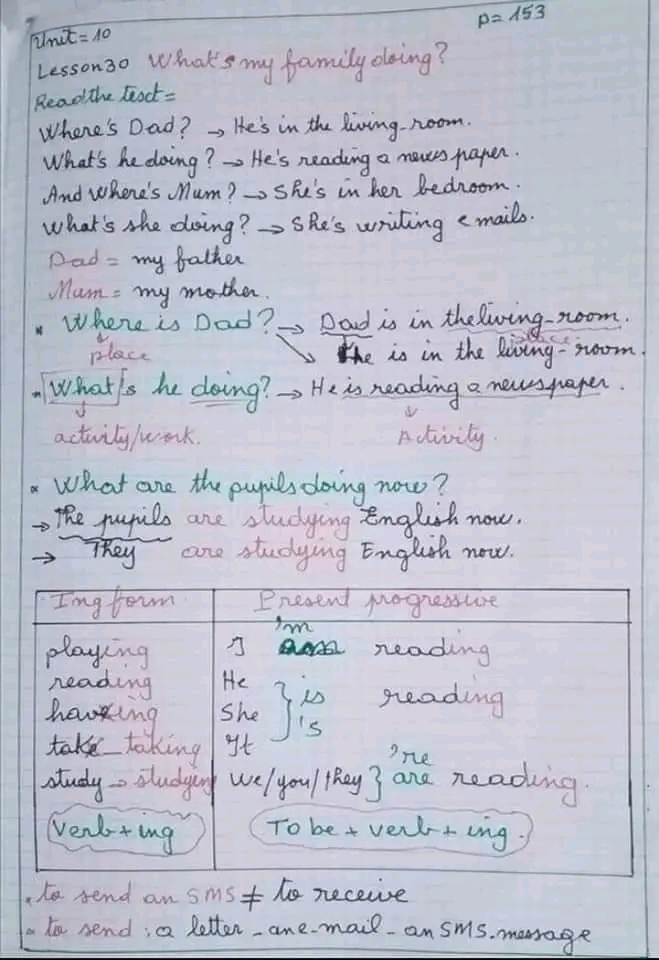 p= 153
Unit = 10
Lesson 30 What's my family doing?
Read the text =
Where's Dad? → He's in the living-room.
What's he doing? → He's reading a newspaper.
And Where's Mum? → She's in her bedroom.
What's she doing? → She's writing emails.
Dad = my father
Mum = my mother.
* Where is Dad? → Dad is in the living-room.
place place
He is in the living-room.
* What's he doing? → He is reading a newspaper.
activity/work. Activity.
* What are the pupils doing now?
→ The pupils are studying English now.
→ They are studying English now.
Ing form Present progressive
'm
playing I am reading
reading He
having She } is 's reading
take taking It
're
study → studying We/you/they } are reading.
Verb + ing To be + verb + ing.
. to send an SMS ≠ to receive
. to send : a letter - an e-mail - an SMS. message